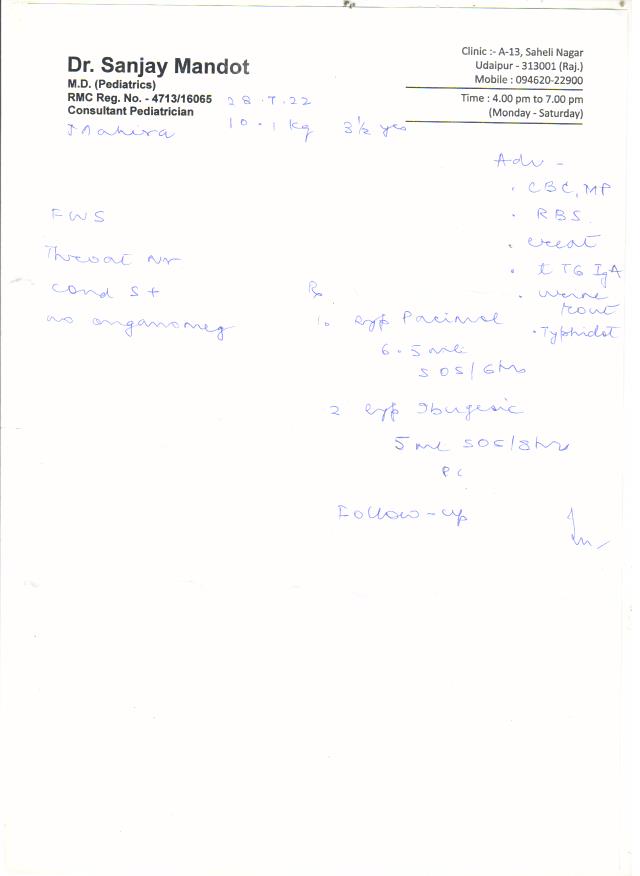 Dr. Sanjay Mandot
M.D. (Pediatrics)
RMC Reg. No. - 4713/16065
Consultant Pediatrician
Clinic :- A-13, Saheli Nagar
Udaipur - 313001 (Raj.)
Mobile : 094620-22900
Time : 4.00 pm to 7.00 pm
(Monday - Saturday)
28.7.22
Mahira 10.1 kg 3½ yrs
Adv -
. CBC, MP
. RBS
. creat
. t TG IgA
. urine
rout
. Typhidot
FWS
Throat Nr
cond S +
no organomeg
Rx
1. syp Pacimol
6.5 ml
SOS/6hrs
2 syp Ibugesic
5 ml SOS/8hrs
PC
Follow-up